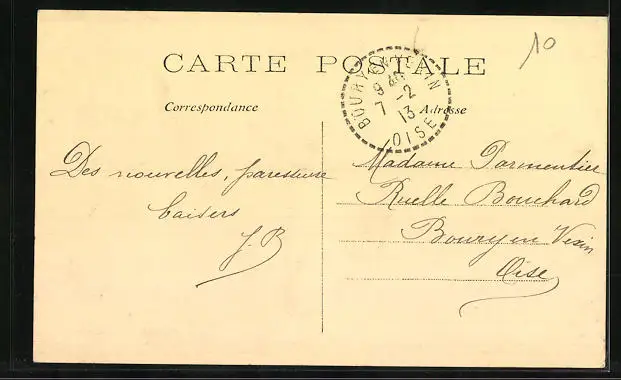 10
CARTE POSTALE
BOURY-EN-VEXIN
9
7 -2
13
OISE
Correspondance
Adresse
Des nouvelles, paresseuse
baisers
J. B
Madame Parmentier
Ruelle Bouchard
Boury en Vexin
Oise